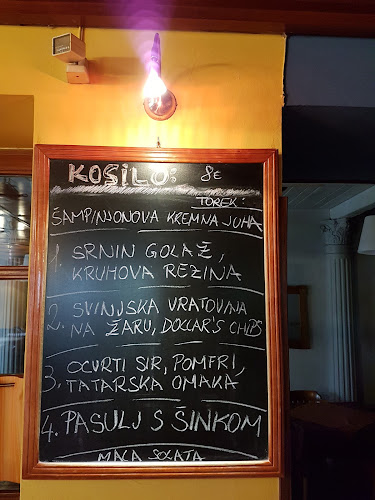 KOSILO: 8€
TOREK:
ŠAMPINJONOVA KREMNA JUHA
1. SRNIN GOLAŽ,
KRUHOVA REZINA
2. SVINJSKA VRATOVINA
NA ŽARU, DOLLAR'S CHIPS
3. OCVRTI SIR, POMFRI,
TATARSKA OMAKA
4. PASULJ S ŠINKOM
MALA SOLATA